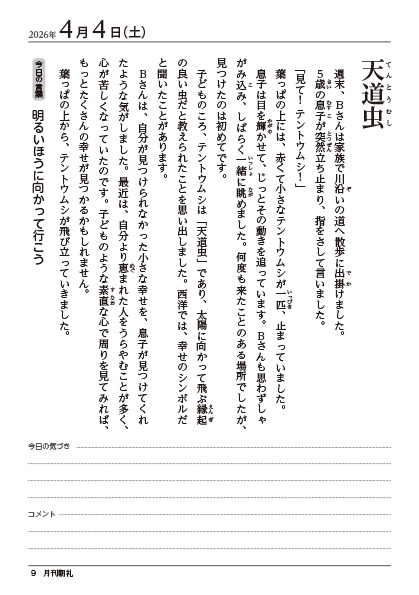 2026年4月4日(土)
天道虫
てんとうむし
週末、Bさんは家族で川沿いの道へ散歩に出掛けました。
5歳の息子が突然立ち止まり、指をさして言いました。
「見て！テントウムシ！」
葉っぱの上には、赤くて小さなテントウムシが一匹、止まっていました。
息子は目を輝かせて、じっとその動きを追っています。Bさんも思わずしゃ
がみ込み、しばらく一緒に眺めました。何度も来たことのある場所でしたが、
見つけたのは初めてです。
子どものころ、テントウムシは「天道虫」であり、太陽に向かって飛ぶ縁起
の良い虫だと教えられたことを思い出しました。西洋では、幸せのシンボルだ
と聞いたことがあります。
Bさんは、自分が見つけられなかった小さな幸せを、息子が見つけてくれ
たような気がしました。最近は、自分より恵まれた人をうらやむことが多く、
心が苦しくなっていたのです。子どものような素直な心で周りを見てみれば、
もっとたくさんの幸せが見つかるかもしれません。
葉っぱの上から、テントウムシが飛び立っていきました。
今日の言葉 明るいほうに向かって行こう
今日の気づき
コメント
9 月刊朝礼